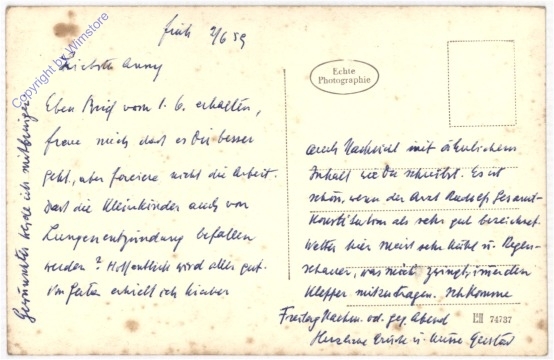 früh 2/6 59
Liebste Anny
Eben Brief vom 1. 6. erhalten,
freue mich dass es Dir besser
geht, aber forciere nicht die Arbeit.
Dass die Kleinkinder auch von
Lungenentzündung befallen
werden? Hoffentlich wird alles gut.
Von erhielt ich hierher
auch Nachricht mit ähnlichem
Inhalt wie Du schreibst. Es ist
schön, wenn der Arzt Gesamt-
Konstitution als sehr gut bezeichnet.
Wetter hier meist sehr kühl u. Regen-
schauer, was mich zwingt, immer den
Klepper mitzutragen. Ich komme
Freitag Nachm. od. geg. Abend
Herzliche Grüsse u. Küsse Gustav
werde ich mitbringen
Echte
Photographie
74737
Copyright by Wimstore